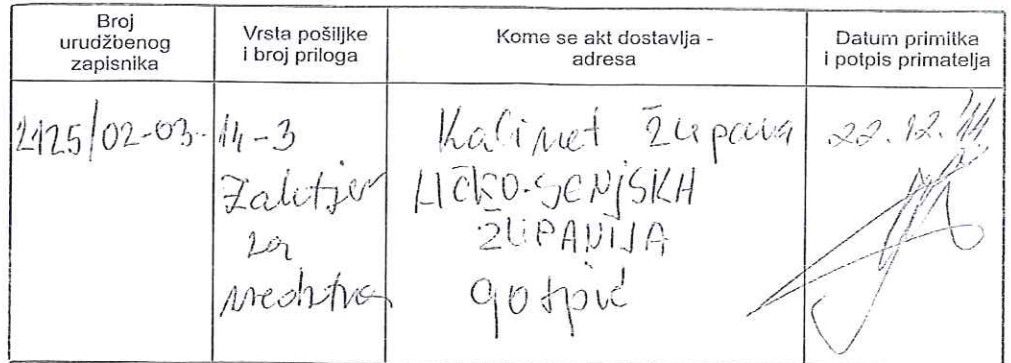 Broj
urudžbenog
zapisnika
Vrsta pošiljke
i broj priloga
Kome se akt dostavlja -
adresa
Datum primitka
i potpis primatelja
2125/02-03-14-3
Zahtjev
za
sredstva
Kabinet župana
LIČKO-SENJSKA
ŽUPANIJA
Gospić
22.12.'14